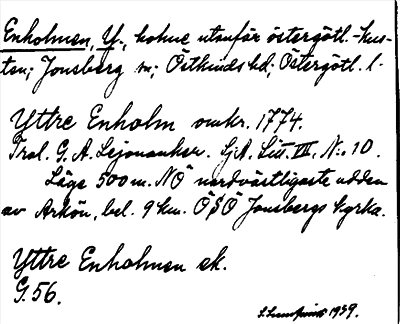 Enholmen, Y., holme utanför östergötl.-kus-
ten; Jonsberg sn; Östkinds hd; Östergötl. l.
Yttre Enholm omkr. 1774.
Tral. G. A. Lejonanker. SjA. Litt. VII. N:o 10.
Läge 500 m. NÖ nordvästligaste udden
av Arkön, bel. 9 km. ÖSÖ Jonsbergs kyrka.
Yttre Enholmen ek.
G. 56.
1939.